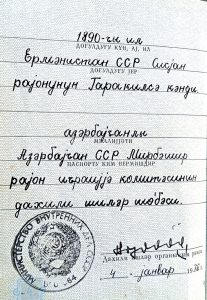 1890-чы ил
ДОҒУЛДУҒУ ҜҮН, АЈ, ИЛ
Ермәнистан ССР Сисјан
ДОҒУЛДУҒУ ЈЕР
рајонунун Гаракилсә кәнди
азәрбајҹанлы
МИЛЛИЈЈӘТИ
Азәрбајҹан ССР Мирбәшир
ПАСПОРТУ КИМ ВЕРМИШДИР
рајон иҹраијјә комитәсинин
дахили ишләр шөбәси.
МИНИСТЕРСТВО ВНУТРЕННИХ ДЕЛ
Дахили ишләр органынын рәиси
4 јанвар